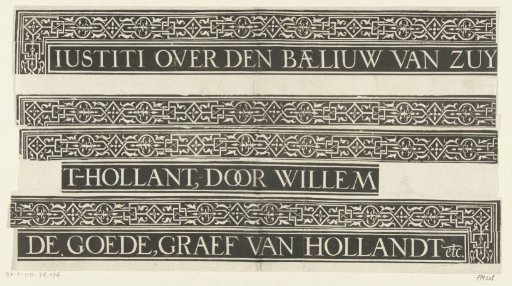 IUSTITI OVER DEN BÆLIUW VAN ZUY
T-HOLLANT, DOOR WILLEM
DE, GOEDE, GRAEF VAN HOLLANDT etc.